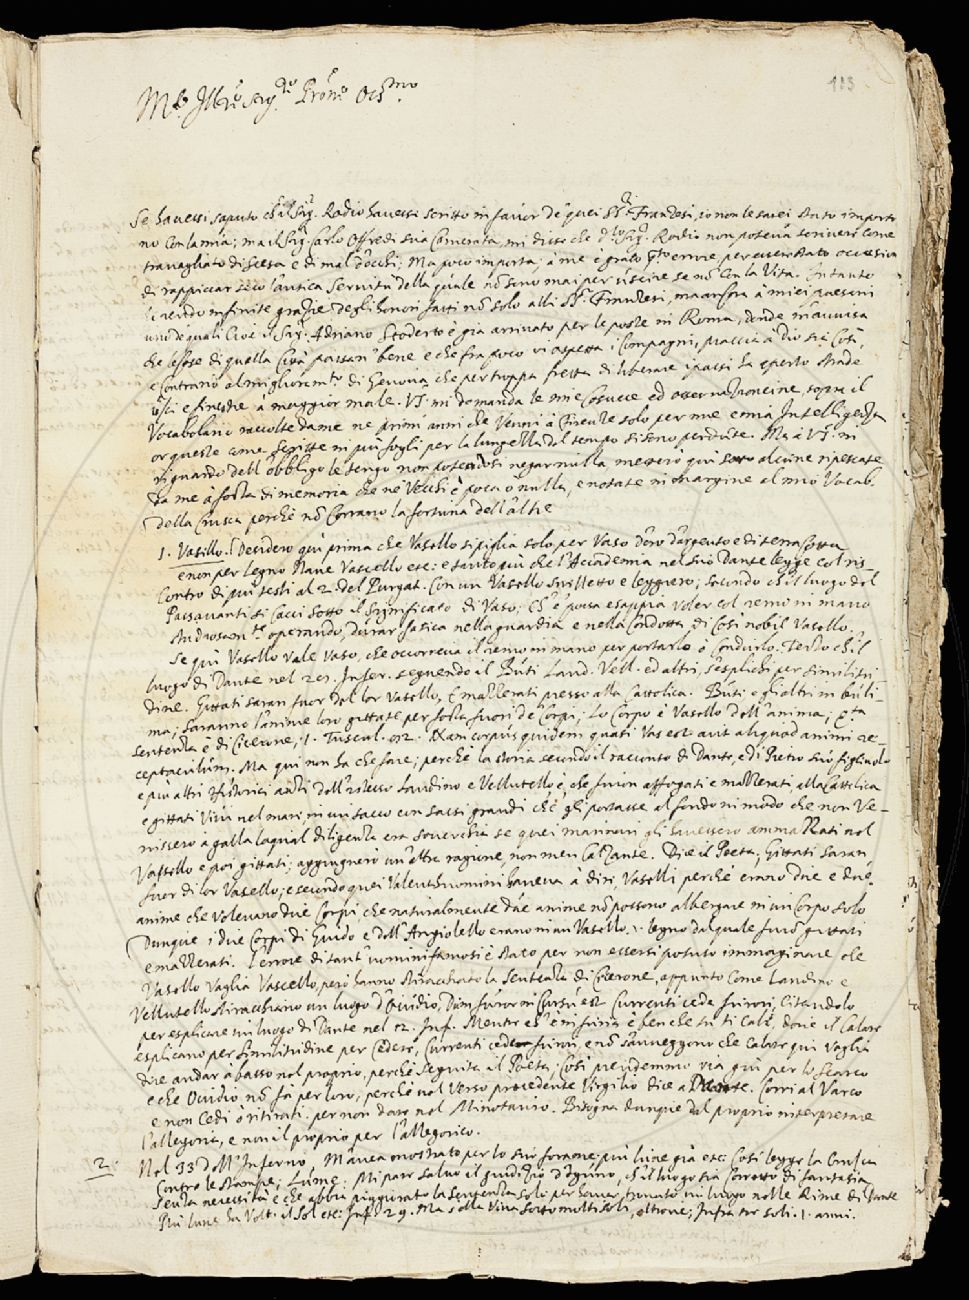 113
Se havessi saputo ch'il Sig. Rodio havesse scritto in favor de quei SS. Franzesi, io non le sarei stato importu
no con la mia; ma il Sig. Carlo Offredi sua Camerata, mi disse che d.to Sig. Rodio non poteva scrivere come
travagliato di scesa e di mal d'occhi; Ma poco importa; à me è grato errore, per essere stato occasion
di rappiccar seco l'antica servitù della quale nõ sono mai per uscire se nõ con la Vita. In tanto
le rendo infinite grazie degli honori fatti nõ solo alli SS.ri Franzesi, ma ancora à miei paesani
uno de quali Cioè il Sig. Adriano è già arrivato per le poste in Roma, donde m'avvisa
che le cose di quella Città passan bene e che fra poco vi aspetta i Compagni, piaccia a Dio sia Così,
e contrario al migliorem.to di Genova che per troppa fretta di liberare i passi ha aperto strade
e finestre à maggior male. VS. mi domanda le mie cosucce ed osservazioncine sopra il
Vocabolario raccolte da me ne primi anni che Venni à Firenze solo per mia Intelligenza
or queste come scritte in più fogli per la lunghezza del tempo si sono perdute. Ma à VS. in
riguardo dell'obbligo le tengo non potendosi negar nulla metterò qui sotto alcune ripescate
da me à forza di memoria che ne' Vecchi è poca ò nulla, e notate in margine al mio Vocab.
della Crusca perchè nõ Corrano la fortuna dell'altre
1. Vasello. Desidero qui prima che Vasello si piglia solo per Vaso d'oro d'argento e di terra cotta
e non per legno Nave Vascello etc: e tanto più che l'Accademia nel suo Dante legge col ris-
contro di più testi al 2. del Purgat. Con un Vasello snelletto e leggiero; secondo ch'il luogo del
Passavanti si cacci sotto il significato di Vaso; e sappia voler col remo in mano
operando, durar fatica nella guardia e nella Condotta di Così nobil Vasello.
Se qui Vasello vale vaso, che occorreva il remo in mano per portarlo ò Condurlo. Terzo ch'il
luogo di Dante nel 28. Infer. seguendo il Buti Land. Vell. ed altri, s'esplichi per similitu-
dine. Gittati saran fuor del lor Vasello, E mazzerati presso alla Cattolica. Buti e gli altri
Saranno l'anime loro gittate per forza fuori de Corpi; Lo Corpo è Vasello dell'anima;
sentenza è di Cicerone, 1. Tuscul. 52. Nam corpus quidem quasi vas est aut aliquod animi re-
ceptaculum. Ma qui non ha che fare; perchè la storia secondo il racconto di Dante, e di Pietro suo figliuolo
e più altri Historici anti dell'istesso Landino e Vellutello è, che furon affogati e mazzerati alla Cattolica
e gittati Vivi nel mare, in un sacco con sassi grandi che gli portasse al fondo in modo che non Ve-
nissero à galla la qual diligenza era soverchia se quei marinari gli havessero ammazzati nel
Vassello e poi gittati; aggiugnerò un'altra ragione, non men calzante. Dice il Poeta, Gittati saran
fuor di lor Vasello; e secondo quei Valent'huomini haveva à dire, Vaselli perchè erano due e due
anime che volevano due Corpi che naturalmente due anime nõ possono albergare in un Corpo solo
Dunque i due Corpi di Guido e dell'Angiolello erano in un Vasello, legno dal quale furõ gittati
e mazzerati. l'errore di tant'huomini famosi è stato per non essersi potuto immaginare che
Vasello Vaglia Vascello, però hanno stiracchiato la sentenza di Cicerone, appunto come Landino e
Vellutello stiracchiano un luogo d'Ovidio, Dum furor in Cursu est Currenti cede furori, Citandolo
per esplicare un luogo di Dante nel 12. Inf. Mentre ch'è in furia è ben che tu ti cale, dove il calare
esplicano per similitudine per Cedere, Currenti cede furori, e nõ s'avveggono che Calar qui Vaglia
dire andar a basso nel proprio, perchè seguita il Poeta, Così prendemmo via giù per lo Scarco
e che Ovidio nõ fa per loro; perchè nel Verso precedente Virgilio dice a Dante. Corri al Varco
e non Cedi ò ritirati per non dare nel Minotauro. Bisogna dunque dal proprio interpretare
l'allegoria, e non il proprio per l'allegorico.
2. Nel 33 dell'Inferno, M'avea mostrato per lo suo forame più lune già etc: Così legge la Crusca
contro le stampe, Lume; Mi pare salvo il giudizio d'ognuno, ch'il luogo sia corrotto di fantasia
senza necessità e che abbia la sentenza solo per haver trovato un luogo nelle Rime di Dante
Più lune ha Volt. il Sol etc: Inf. 29. Ma sotto molti soli, altrove; Infra tre soli. i. anni.